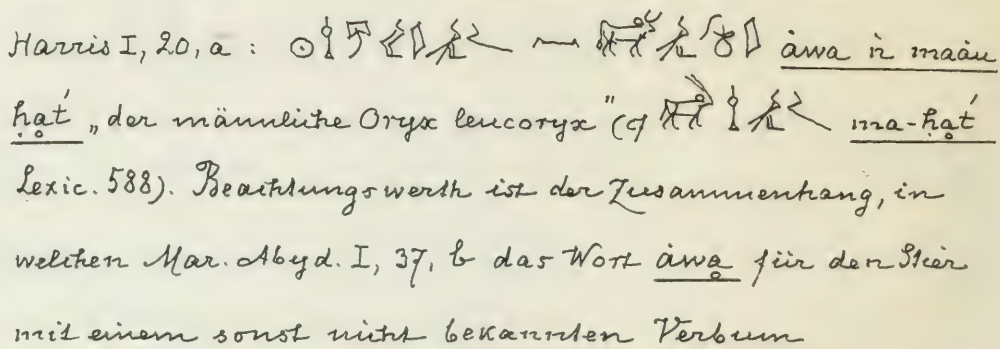 Harris I, 20, a : åwa n maåu
ḥať „der männliche Oryx leucoryx" (cf ma-ḥať
Lexic. 588). Beachtungswerth ist der Zusammenhang, in
welchen Mar. Abyd. I, 37, b das Wort åwa für den Stier
mit einem sonst nicht bekannten Verbum